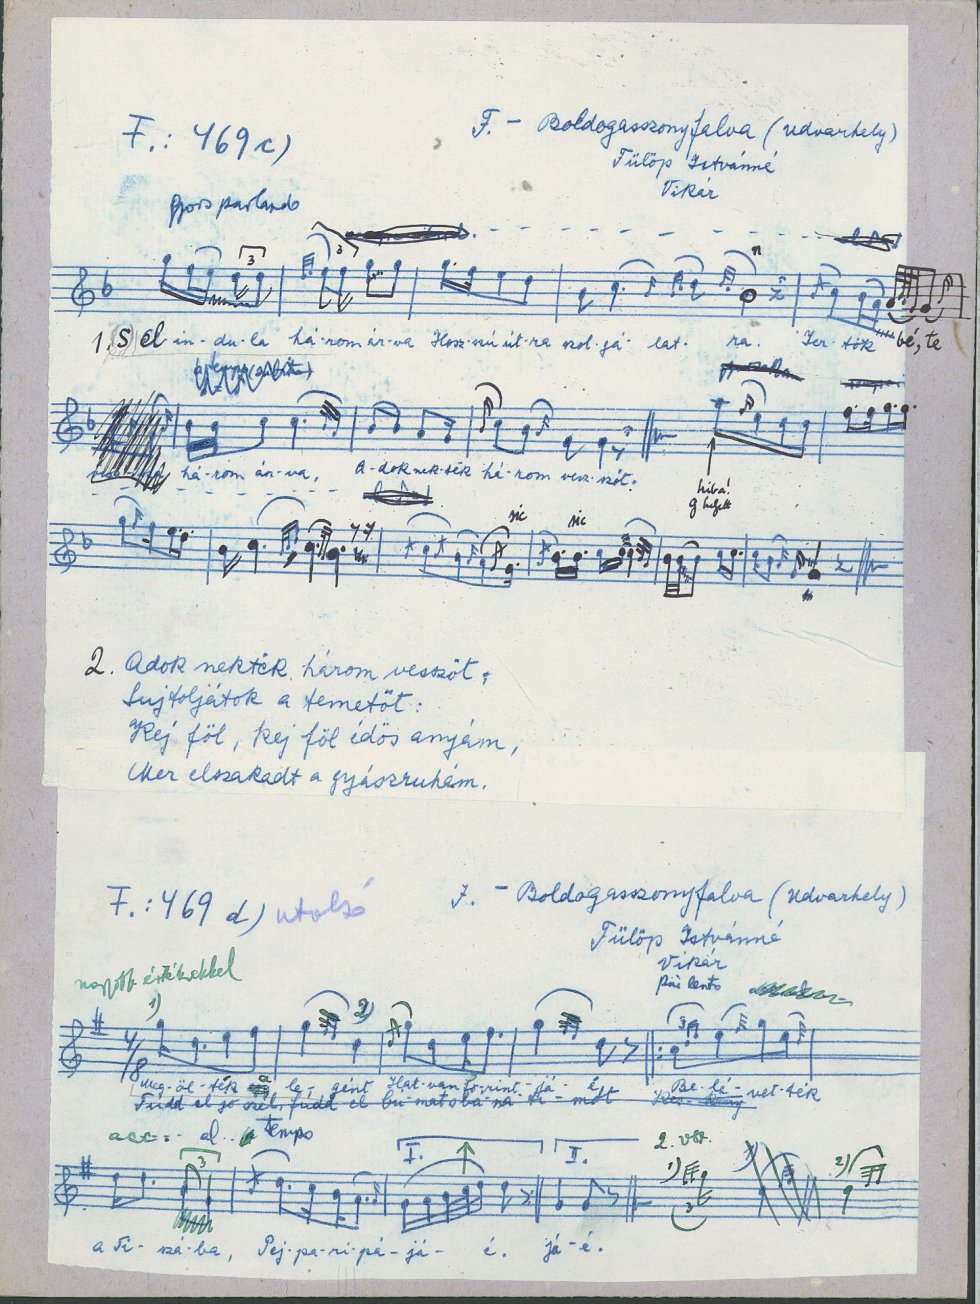 F.: 469 c)
F. - Boldogasszonyfalva (Udvarhely)
Fülöp Istvánné
Vikár
Gyors parlando
3 3
1. S el in-du-la há-rom ár-va Hosz-szú út-ra szol-gá-lat-ra. Jer-tök bé, te
há-rom ár-va, A-dok nek-ték há-rom vesz-szőt.
hiba!
g helyett
sic sic
2. Adok nekték három vesszőt,
Sujtoljátok a temetőt:
Kej föl, kej föl édös anyám,
Mer elszakadt a gyászruhám.
F.: 469 d) utolsó
F. - Boldogasszonyfalva (Udvarhely)
Fülöp Istvánné
Vikár
Più lento
nagyobb értékekkel
1) 2)
4/8
Meg-öl-ték a le-gént Hat-van fo-rint-já-é, Be-lé-vet-ték
Fúdd el jó szél, fúdd el
acc. al tempo
3 I. II. 2. vsz. 1) 2)
3
a Ti-szá-ba, Pej-pa-ri-pá-já-é. já-é.